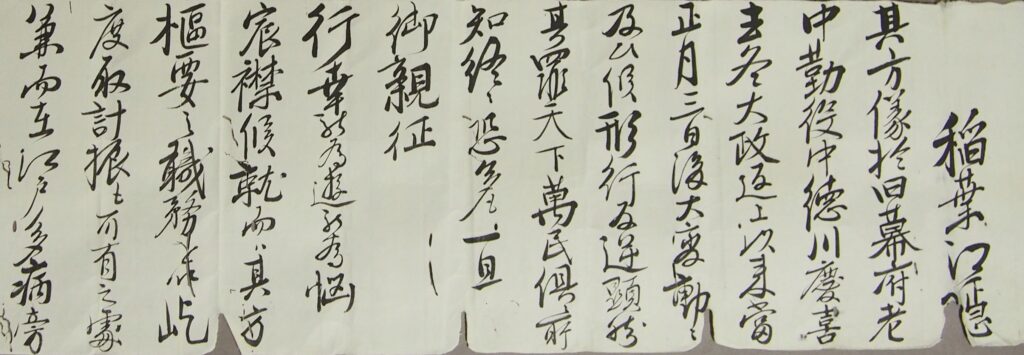 稲葉江隠
其方儀於旧幕府老
中勤役中徳川慶喜
去冬大政返上以来當
正月三日後大変動ニ
及ひ候形行反逆顕然
其罪天下萬民倶所
知終ニ恐多一旦
御親征
行幸被為遊被為悩
宸襟候就而ハ其方
樞要之職務乍屹
度取計振も可有之處
兼而在江戸多病旁